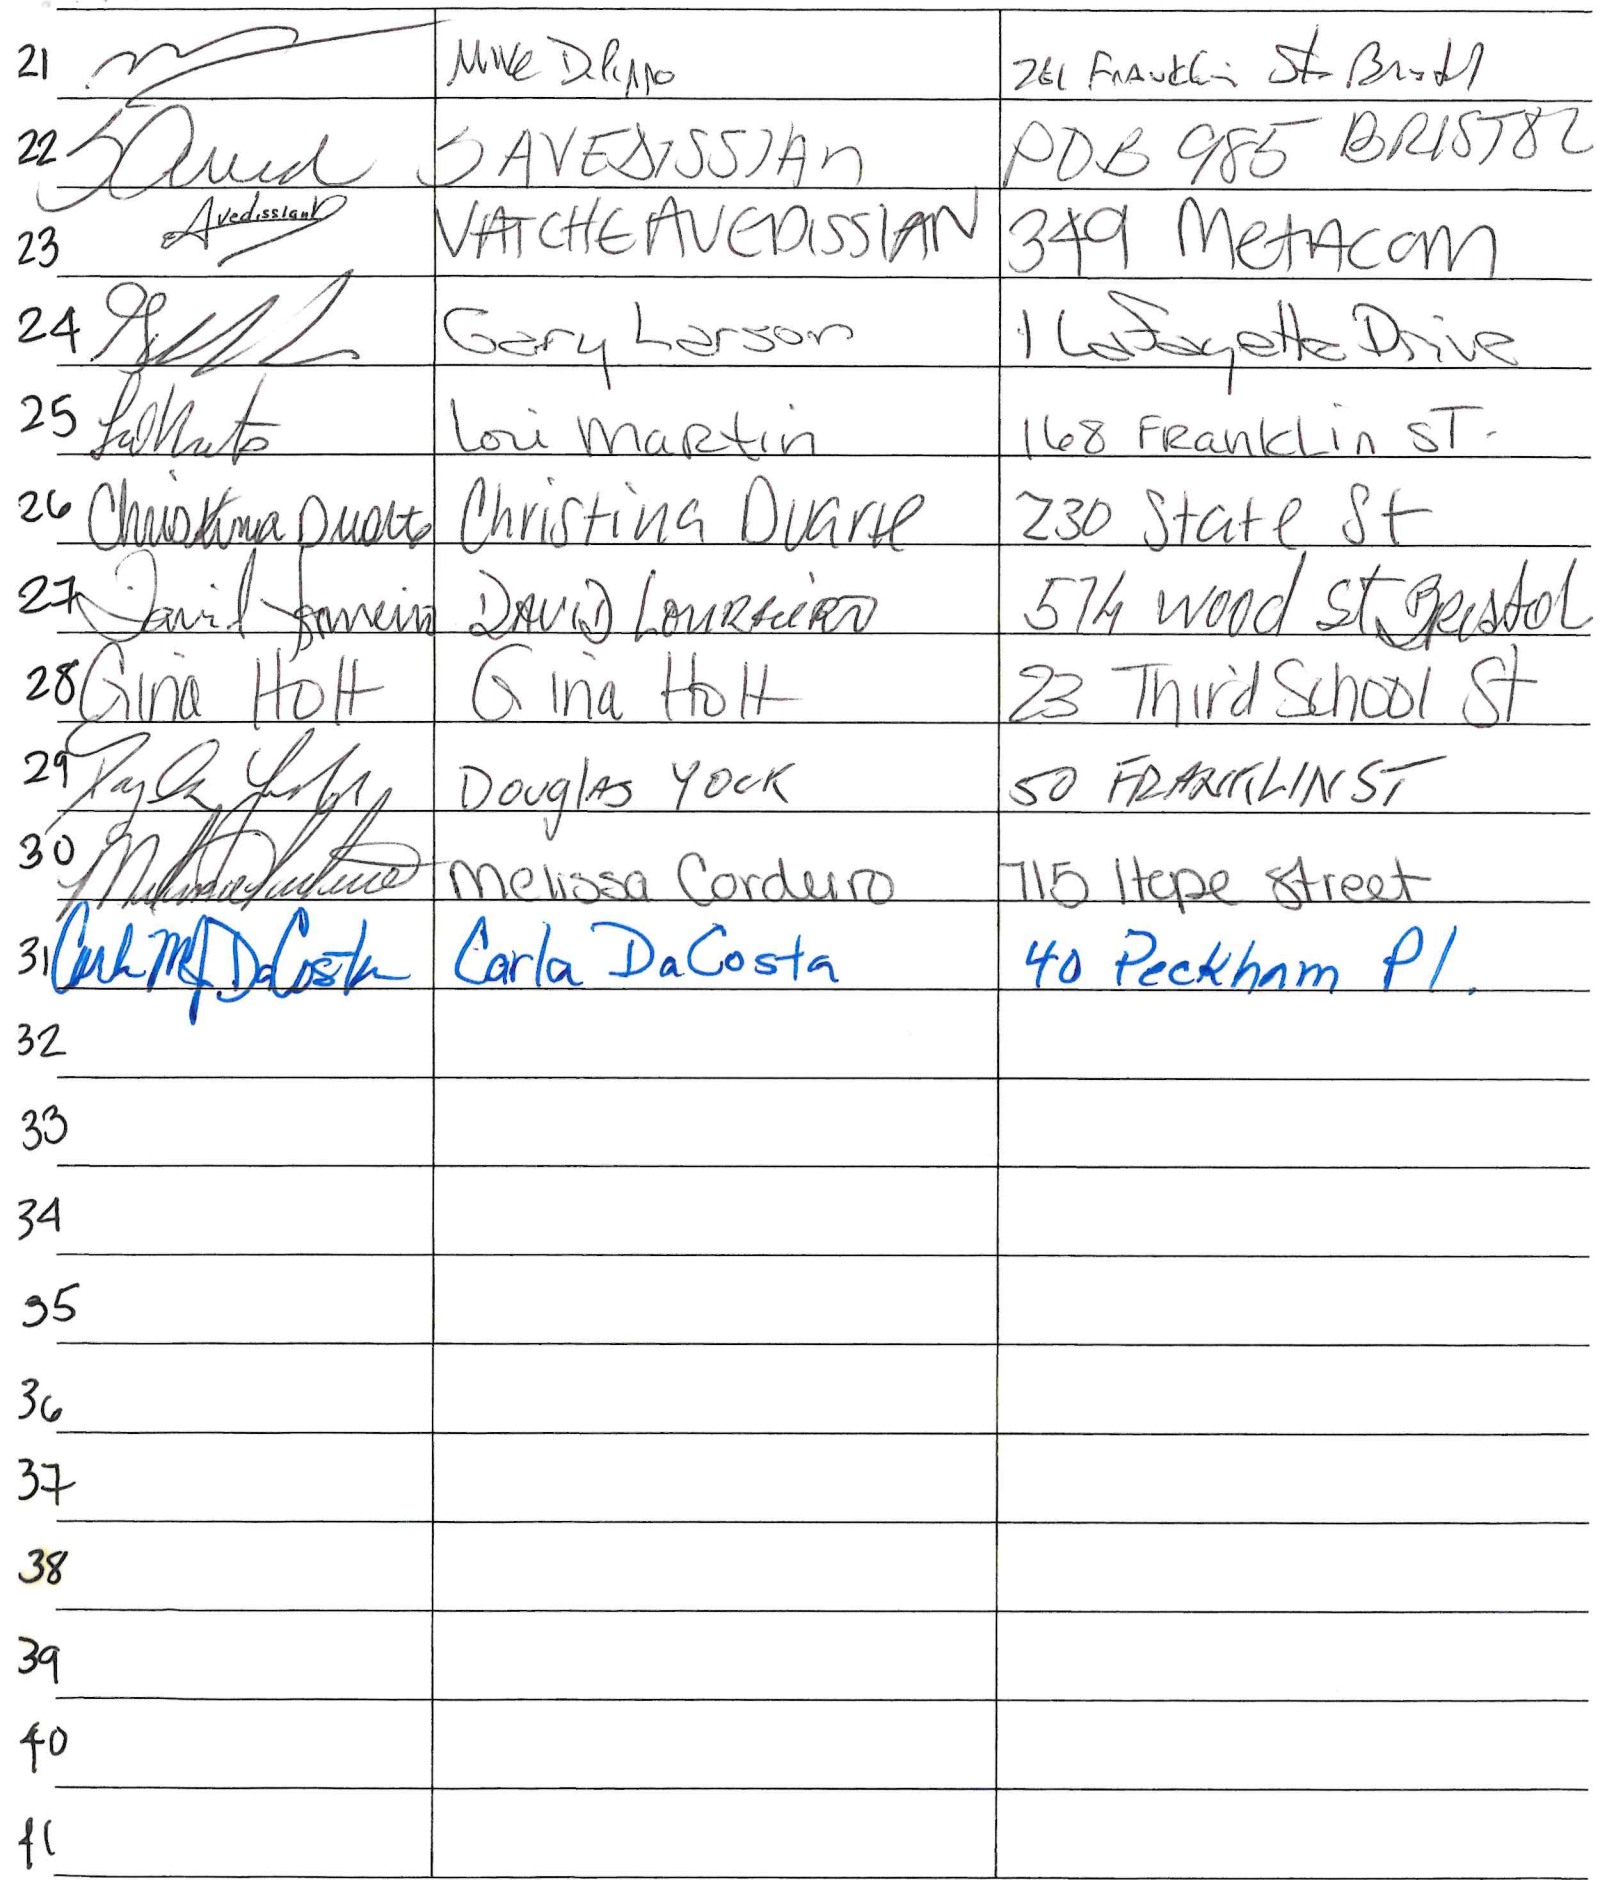 21 Mike DiLippo 261 Franklin St Bristol
22 S AVEDISSIAN POB 985 BRISTOL
23 Avedissian VATCHE AVEDISSIAN 349 Metacom
24 Gary Larson 1 Lafayette Drive
25 Lori Martin 168 Franklin ST.
26 Christina Duarte Christina Duarte 230 State St
27 David Loureiro DAVID LOUREIRO 574 Wood St Bristol
28 Gina Holt Gina Holt 23 Third School St
29 Douglas YOCK 50 FRANKLIN ST
30 Melissa Cordeiro 715 Hope Street
31 Carla M. DaCosta Carla DaCosta 40 Peckham Pl.
32
33
34
35
36
37
38
39
40
41